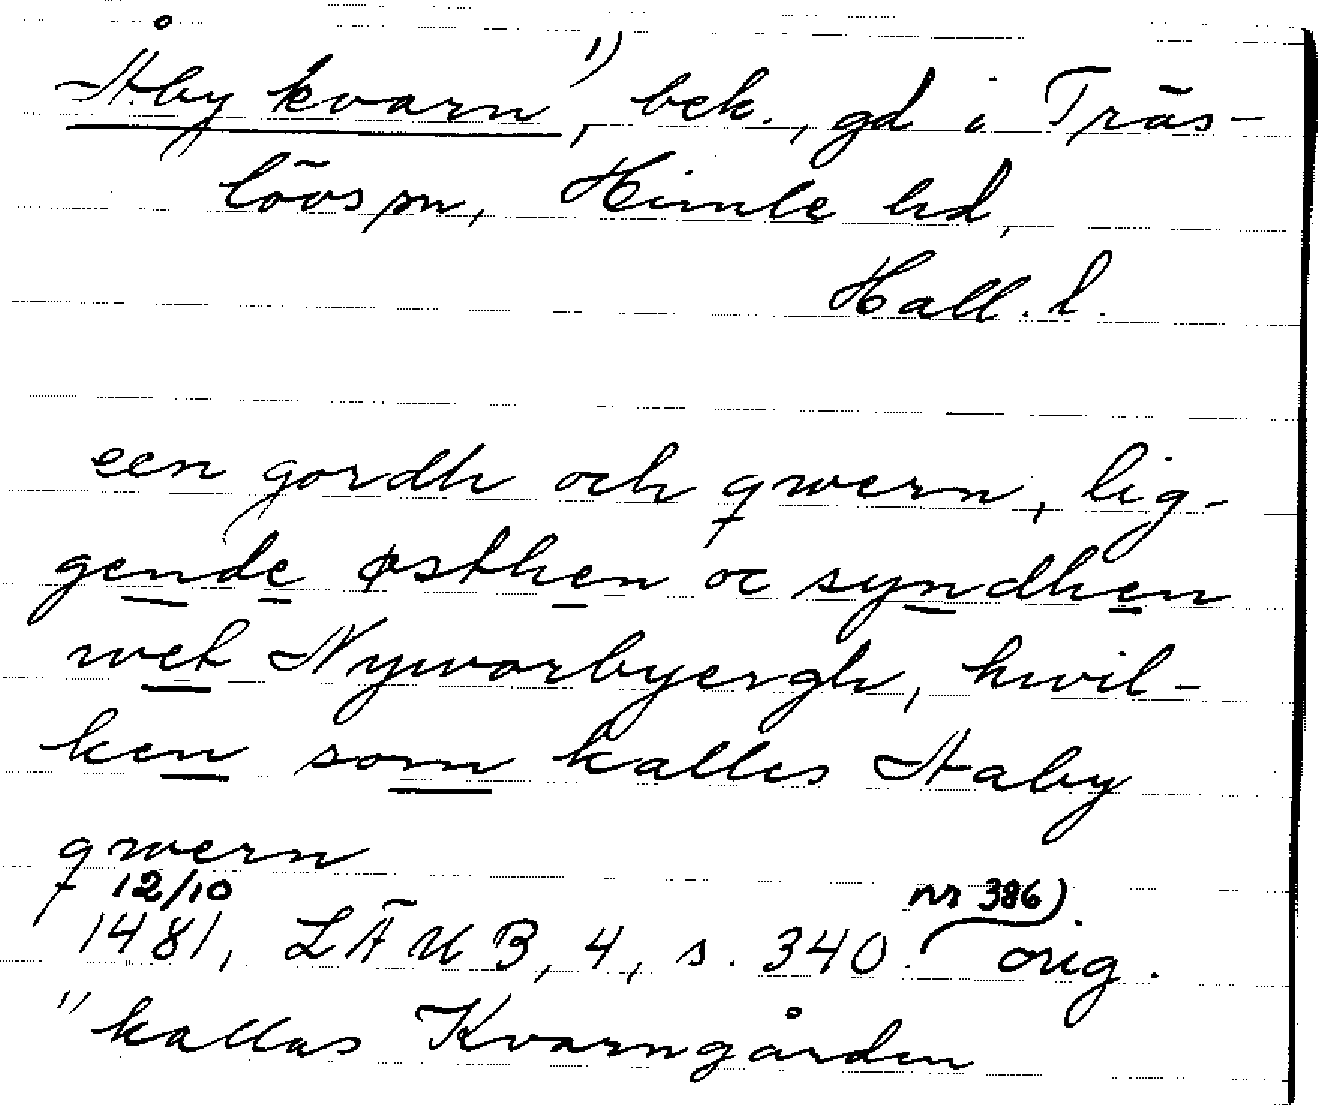 Åby kvarn¹⁾, bek., gd i Träs-
lövs sn, Himle hd,
Hall. l.
een gordh och qwern, lig-
gende østhen oc syndhen
wet Nyworbyergh, hwil-
ken som kalles Aaby
qwern
12/10 nr 386)
1481, LÄUB, 4, s. 340. orig.
¹⁾ kallas Kvarngården